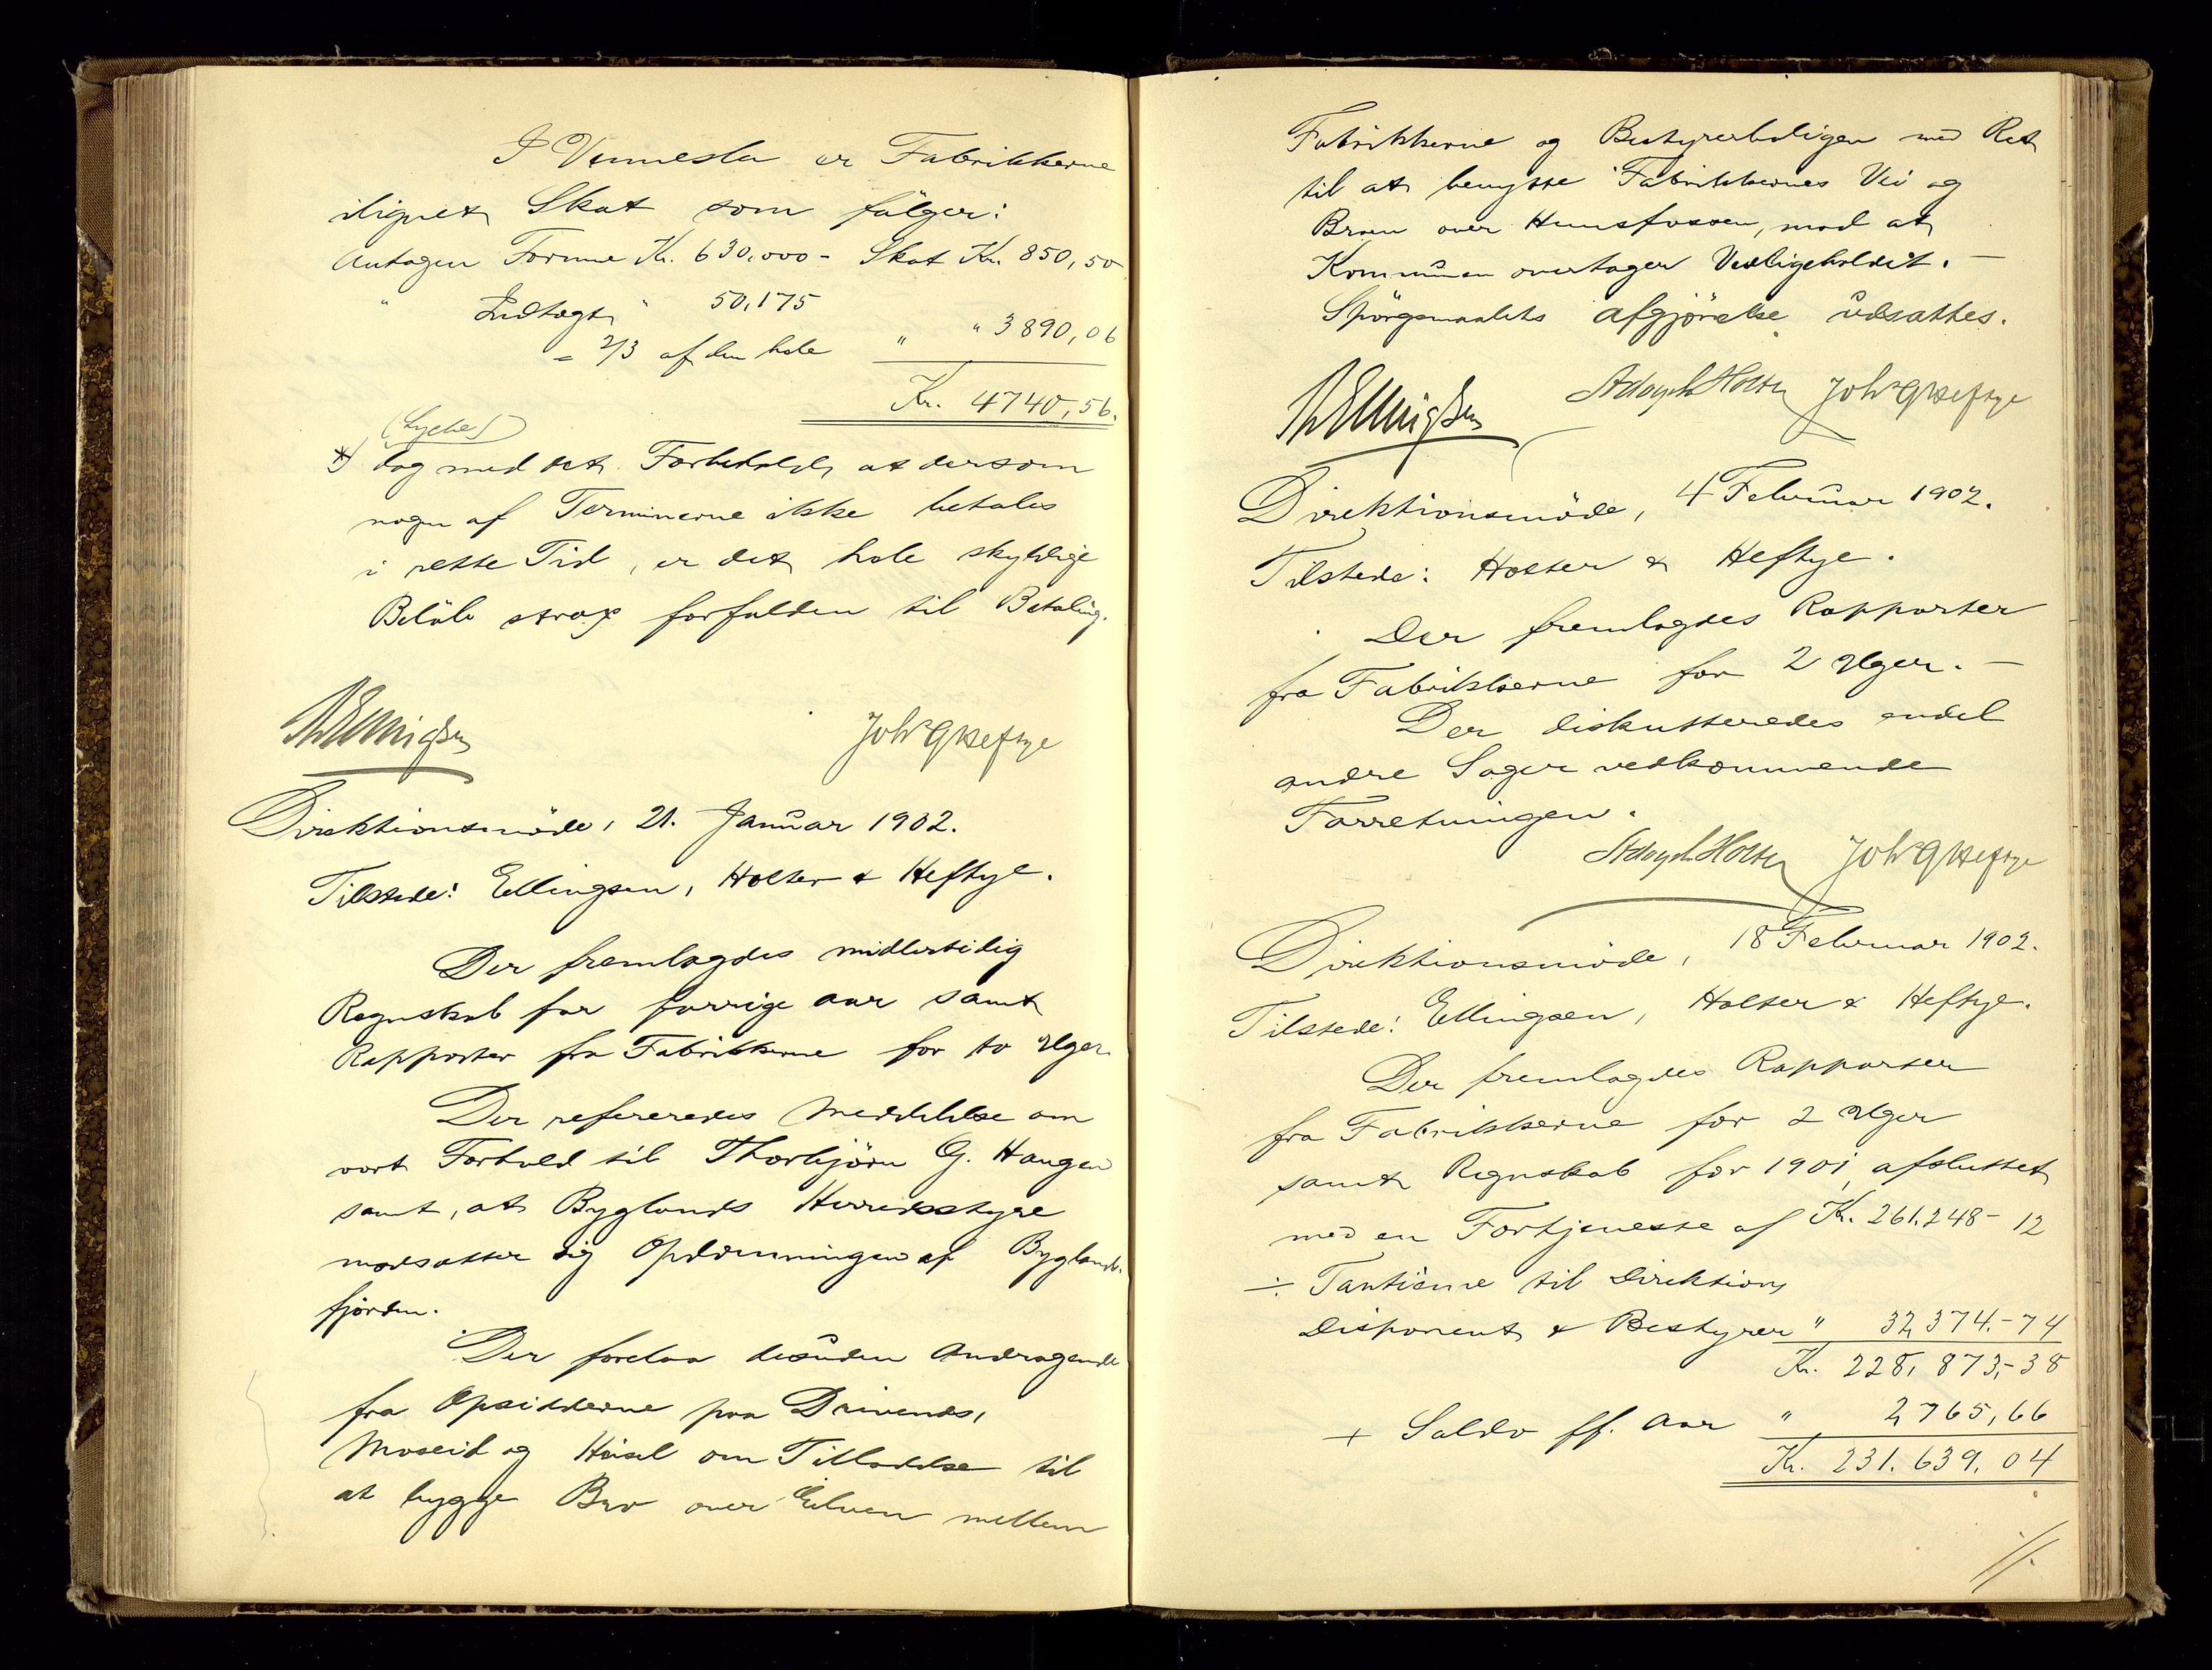 I Vennesla er Fabrikkerne
ilignet Skat som fölger:
Antagen Formue Kr. 630.000 - Skat Kr. 850,50
" Indtægt " 50,175
= 2/3 af den hele " " 3890,06
Kr. 4740,56.
(Lyche)
*) dog med det Forbehold, at dersom
nogen af Terminerne ikke betales
i rette Tid, er det hele skyldige
Belöb strax forfalden til Betaling.
ThEllingsen Joh's G Heftye
Direktionsmöde, 21. Januar 1902.
Tilstede: Ellingsen, Holter & Heftye.
Der fremlagdes midlertidig
Regnskab for forrige aar samt
Rapporter fra Fabrikkerne for to Uger.
Der refereredes Meddelelse om
vort Forhold til Thorbjörn G. Haugen
samt, at Byglands Herredsstyre
modsætter sig Opdæmningen af Byglands-
fjorden.
Der forelaa desuden Andragende
fra Opsidderne paa Drivenes,
Moseid og Häsel om Tilladelse til
at bygge Bro over Elven mellem
Fabrikkerne og Bestyrerboligen med Ret
til at benytte Fabrikkernes Vei og
Broen over Hunsfossen, mod at
Kommunen overtager Vedligeholdet. -
Spörgsmaalets afgjörelse udsattes.
ThEllingsen Adolph Holter Joh's G Heftye
Direktionsmöde, 4 Februar 1902.
Tilstede: Holter & Heftye.
Der fremlagdes Rapporter
fra Fabrikkerne for 2 Uger. -
Der diskutteredes endel
andre Sager vedkommende
Forretningen.
Adolph Holter Joh's G Heftye
Direktionsmöde, 18 Februar 1902.
Tilstede: Ellingsen, Holter & Heftye.
Der fremlagdes Rapporter
fra Fabrikkerne for 2 Uger
samt Regnskab for 1901, afsluttet
med en Fortjeneste af Kr. 261.248 - 12
÷ Tantième til Direktion,
Disponent & Bestyrer " 32,374.-74
Kr. 228,873,-38
+ Saldo ff. Aar " 2,765,66
Kr. 231.639.04
·/.